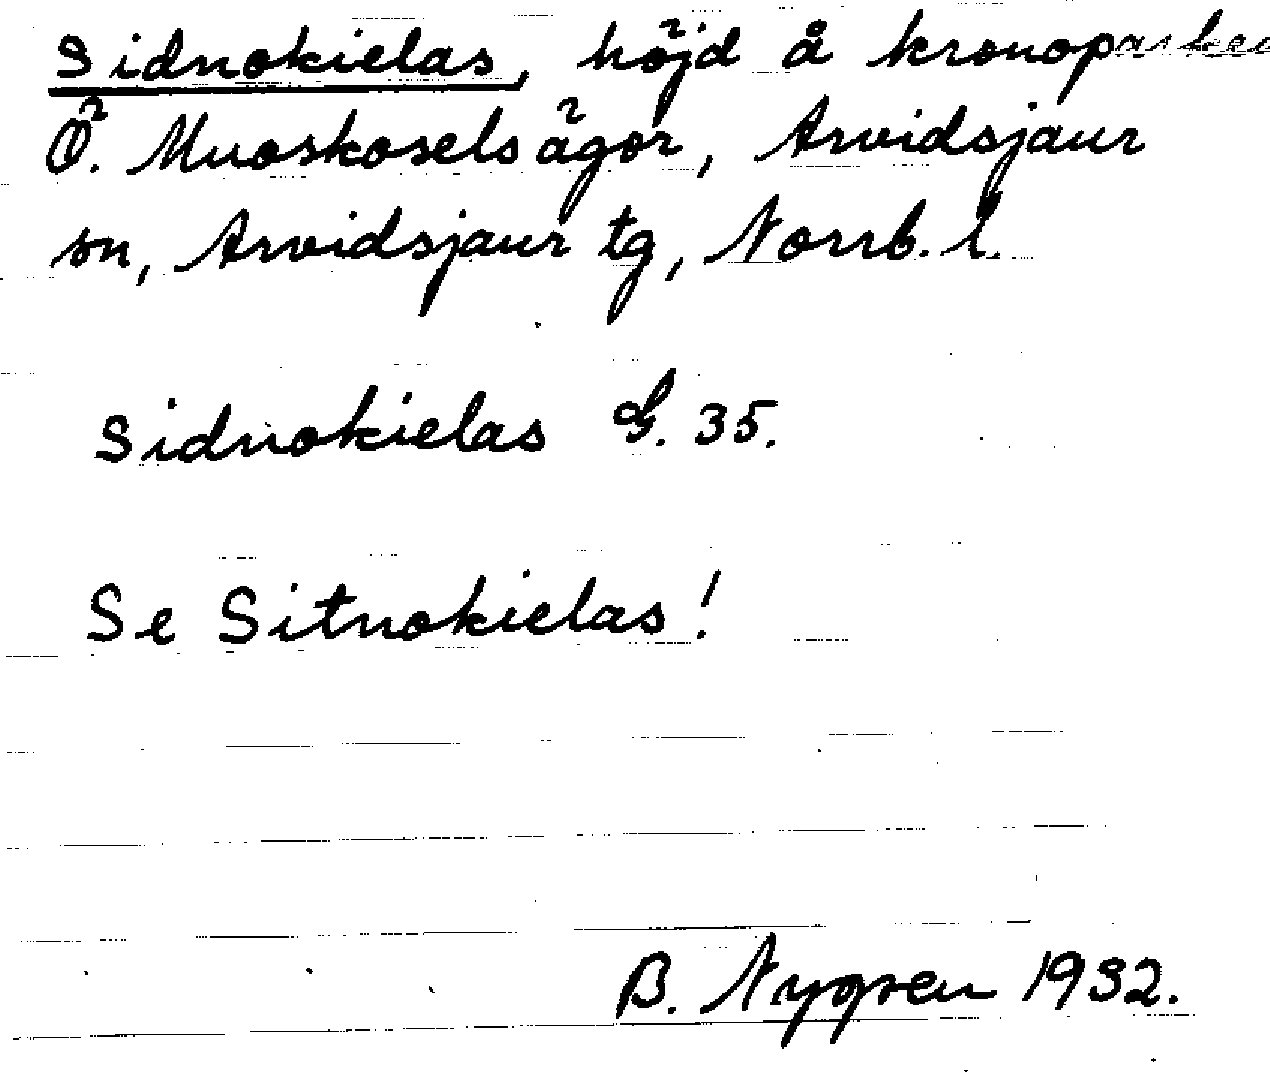 Sidnokielas, höjd å kronoparken
Ö. Muoskosels ägor, Arvidsjaur
sn, Arvidsjaur tg, Norrb. l.
Sidnokielas G. 35.
Se Sitnokielas!
B. Nygren 1932.